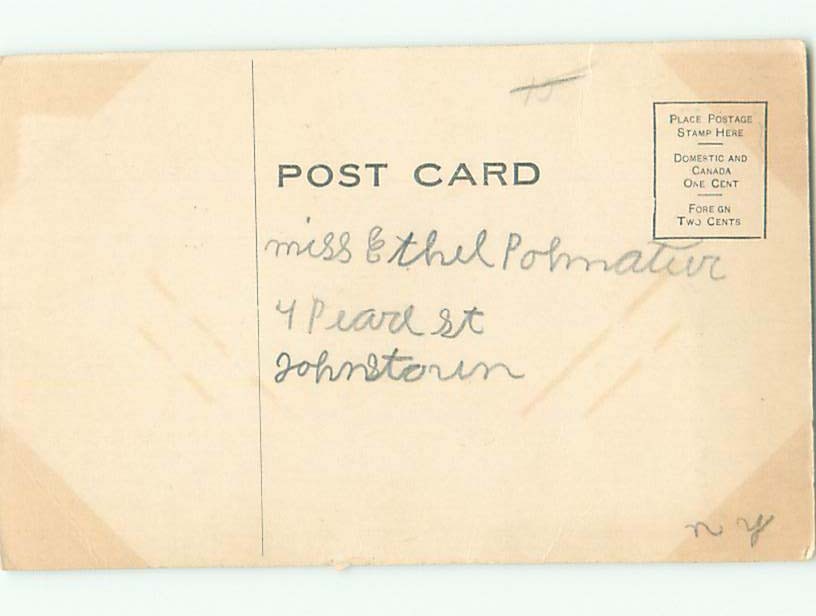 15
POST CARD
PLACE POSTAGE
STAMP HERE
DOMESTIC AND
CANADA
ONE CENT
FOREIGN
TWO CENTS
miss Ethel Polmateer
4 Pearl st
Johnstown
n y